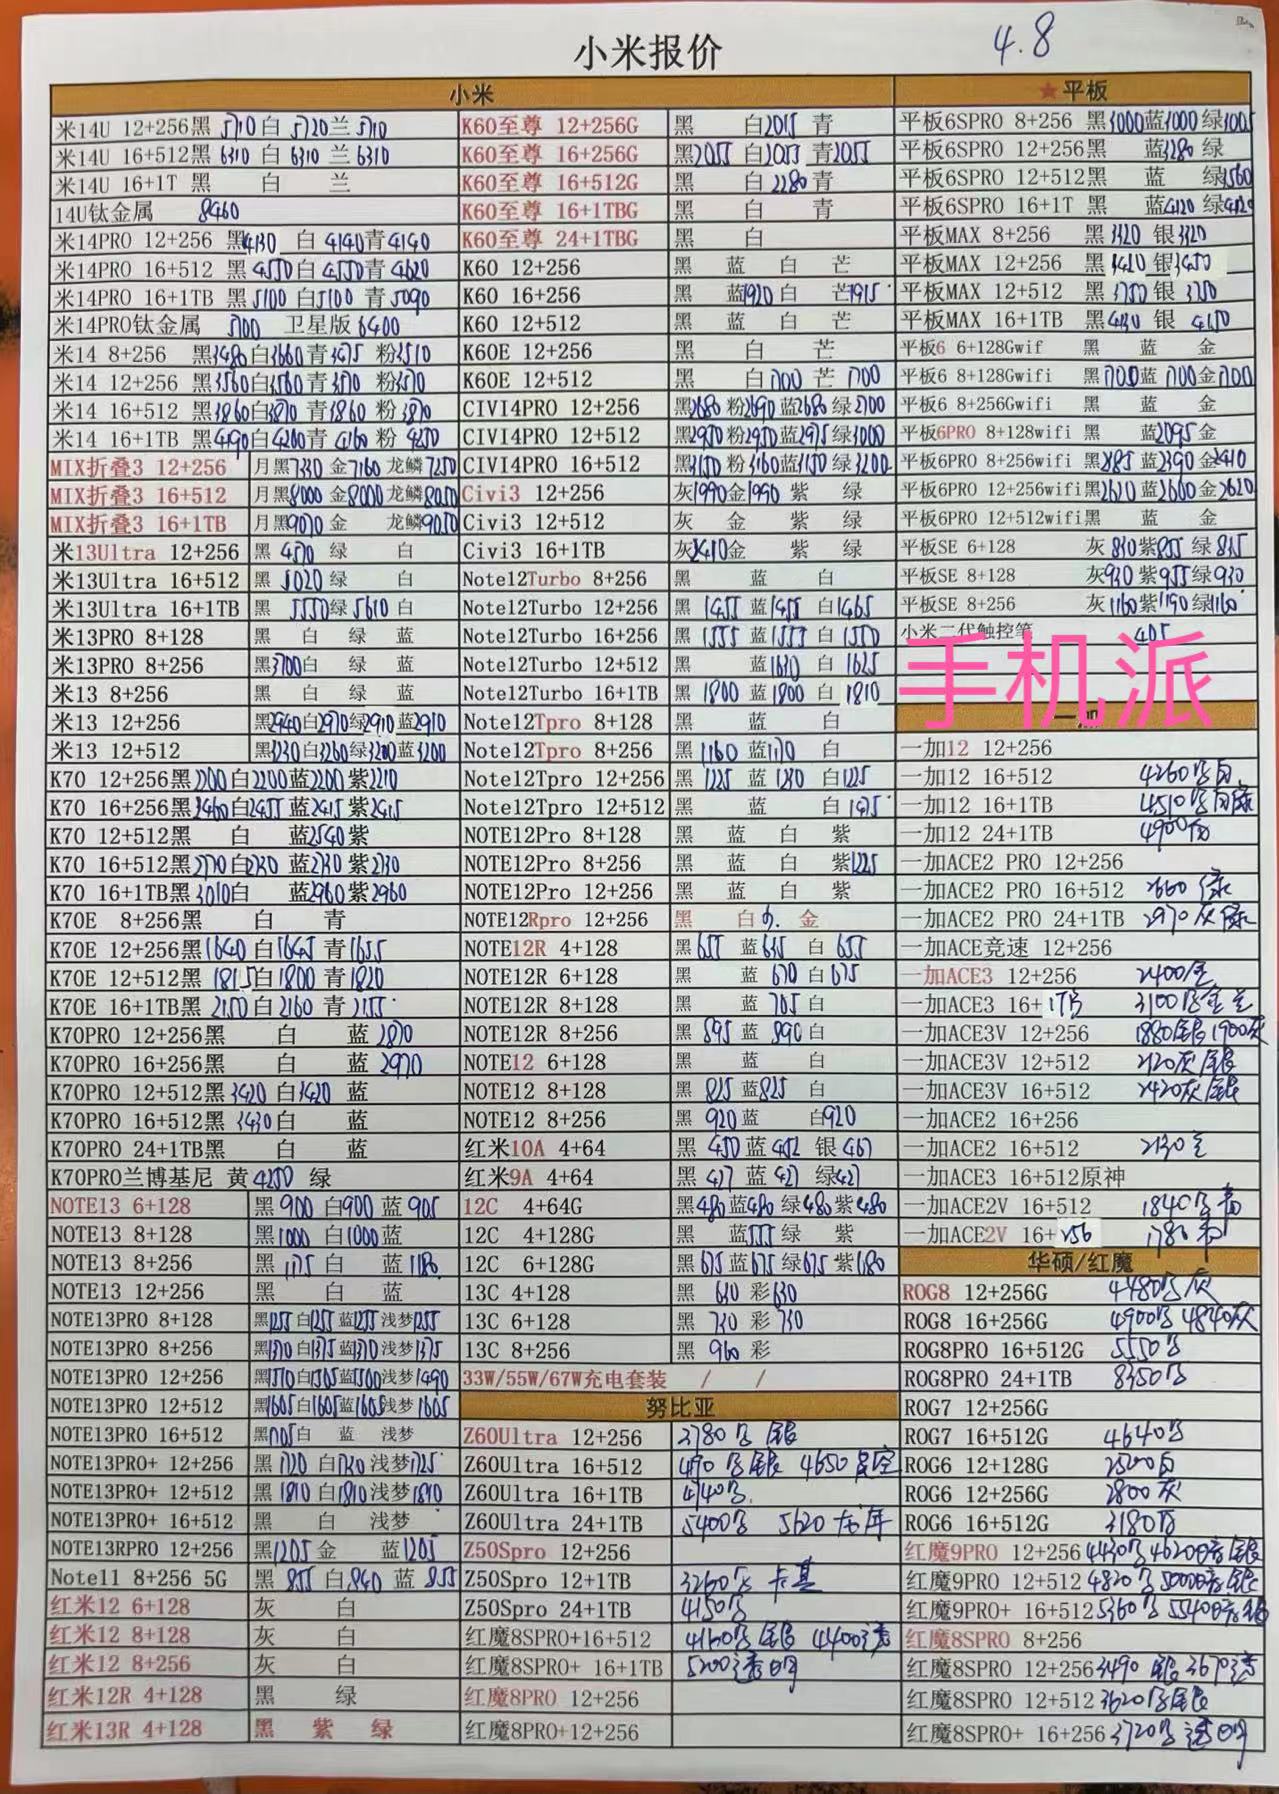 小米报价
4.8
小米
米14U 12+256黑 5710 白 5720兰 5710
米14U 16+512黑 6310 白 6310 兰 6310
米14U 16+1T 黑 白 兰
14U钛金属 8460
米14PRO 12+256 黑4130 白 4140青4140
米14PRO 16+512 黑 4550白4550青4620
米14PRO 16+1TB 黑 5100 白5100 青 5090
米14PRO钛金属 5700 卫星版 6400
米14 8+256 黑3480白3660青3475 粉3510
米14 12+256 黑3560白3560青3570 粉3570
米14 16+512 黑3860白3870 青3860 粉3870
米14 16+1TB 黑4190白4200青 4160 粉 4250
MIX折叠3 12+256 月黑7330 金7160 龙鳞7250
MIX折叠3 16+512 月黑8000 金8000 龙鳞8050
MIX折叠3 16+1TB 月黑9070 金 龙鳞9050
米13Ultra 12+256 黑 4570 绿 白
米13Ultra 16+512 黑 5020 绿 白
米13Ultra 16+1TB 黑 5550绿 5610 白
米13PRO 8+128 黑 白 绿 蓝
米13PRO 8+256 黑3700白 绿 蓝
米13 8+256 黑 白 绿 蓝
米13 12+256 黑2940白2970绿2910 蓝2910
米13 12+512 黑3230白3260绿3200蓝3200
K70 12+256黑2200白2200蓝2200 紫2210
K70 16+256黑2460白2455 蓝2415 紫2415
K70 12+512黑 白 蓝2540紫
K70 16+512黑2770白2730 蓝2730 紫2730
K70 16+1TB黑3010白 蓝2960紫2960
K70E 8+256黑 白 青
K70E 12+256黑1640 白1645 青1655
K70E 12+512黑 1815白1800 青1820
K70E 16+1TB黑 2150白 2160 青 2155
K70PRO 12+256黑 白 蓝 2870
K70PRO 16+256黑 白 蓝 2970
K70PRO 12+512黑 3420 白3420 蓝
K70PRO 16+512黑 3430白 蓝
K70PRO 24+1TB黑 白 蓝
K70PRO兰博基尼 黄 4250 绿
NOTE13 6+128 黑 900 白900 蓝 905
NOTE13 8+128 黑1000 白1000蓝
NOTE13 8+256 黑 1175 白 蓝1180
NOTE13 12+256 黑 白 蓝
NOTE13PRO 8+128 黑1255 白1255 蓝1255 浅梦1255
NOTE13PRO 8+256 黑1370 白1375蓝1370 浅梦1375
NOTE13PRO 12+256 黑1510白1505蓝1500浅梦1490
NOTE13PRO 12+512 黑1605白1605蓝1605浅梦 1605
NOTE13PRO 16+512 黑1705白 蓝 浅梦
NOTE13PRO+ 12+256 黑 1720 白1730 浅梦1725
NOTE13PRO+ 12+512 黑 1810 白1810 浅梦1810
NOTE13PRO+ 16+512 黑 白 浅梦
NOTE13RPRO 12+256 黑1205 金 蓝1205
Note11 8+256 5G 黑 855 白 840 蓝 855
红米12 6+128 灰 白
红米12 8+128 灰 白
红米12 8+256 灰 白
红米12R 4+128 黑 绿
红米13R 4+128 黑 紫 绿
K60至尊 12+256G 黑 白2015 青
K60至尊 16+256G 黑2055 白2055 青2055
K60至尊 16+512G 黑 白 2280青
K60至尊 16+1TBG 黑 白 青
K60至尊 24+1TBG 黑 白
K60 12+256 黑 蓝 白 芒
K60 16+256 黑 蓝1920 白 芒1915
K60 12+512 黑 蓝 白 芒
K60E 12+256 黑 白 芒
K60E 12+512 黑 白1700 芒 1700
CIVI4PRO 12+256 黑2680 粉2690 蓝2680 绿2700
CIVI4PRO 12+512 黑2950 粉2950 蓝2975 绿3000
CIVI4PRO 16+512 黑3150 粉3160蓝3150 绿3200
Civi3 12+256 灰1990金1990 紫 绿
Civi3 12+512 灰 金 紫 绿
Civi3 16+1TB 灰2410金 紫 绿
Note12Turbo 8+256 黑 蓝 白
Note12Turbo 12+256 黑 1455 蓝1455 白1465
Note12Turbo 16+256 黑 1555 蓝1555 白 1550
Note12Turbo 12+512 黑 蓝1630 白 1625
Note12Turbo 16+1TB 黑 1800 蓝1800 白 1810
Note12Tpro 8+128 黑 蓝 白
Note12Tpro 8+256 黑 1160 蓝1170 白
Note12Tpro 12+256 黑 1225 蓝 1280 白1225
Note12Tpro 12+512 黑 蓝 白 1475
NOTE12Pro 8+128 黑 蓝 白 紫
NOTE12Pro 8+256 黑 蓝 白 紫1225
NOTE12Pro 12+256 黑 蓝 白 紫
NOTE12Rpro 12+256 黑 白 金
NOTE12R 4+128 黑 655 蓝 635 白 655
NOTE12R 6+128 黑 蓝 670 白 675
NOTE12R 8+128 黑 蓝 765 白
NOTE12R 8+256 黑 895 蓝 890 白
NOTE12 6+128 黑 蓝 白
NOTE12 8+128 黑 825 蓝825 白
NOTE12 8+256 黑 920 蓝 白920
红米10A 4+64 黑 450 蓝 452 银 467
红米9A 4+64 黑 427 蓝 427 绿427
12C 4+64G 黑480 蓝480 绿480 紫480
12C 4+128G 黑 蓝555 绿 紫
12C 6+128G 黑 675 蓝675 绿675 紫
13C 4+128 黑 630 彩630
13C 6+128 黑 730 彩 730
13C 8+256 黑 960 彩
33W/55W/67W充电套装 / /
努比亚
Z60Ultra 12+256 3780 黑 银
Z60Ultra 16+512 黑 银 4650 星空
Z60Ultra 16+1TB 4740黑
Z60Ultra 24+1TB 5400黑 5620 龙年
Z50Spro 12+256
Z50Spro 12+1TB 3260 卡其
Z50Spro 24+1TB 4150黑
红魔8SPRO+16+512 4160黑 银 4400透
红魔8SPRO+ 16+1TB 5200透明
红魔8PRO 12+256
红魔8PRO+12+256
★平板
平板6SPRO 8+256 黑3000蓝3000 绿3005
平板6SPRO 12+256黑 蓝3280 绿
平板6SPRO 12+512黑 蓝 绿3560
平板6SPRO 16+1T 黑 蓝4120 绿4120
平板MAX 8+256 黑 3320 银3320
平板MAX 12+256 黑 3420 银3450
平板MAX 12+512 黑 3750 银 3750
平板MAX 16+1TB 黑4130 银 4150
平板6 6+128Gwif 黑 蓝 金
平板6 8+128Gwifi 黑1700蓝 1700金1700
平板6 8+256Gwifi 黑 蓝 金
平板6PRO 8+128wifi 黑 蓝2095 金
平板6PRO 8+256wifi 黑2385 蓝2390 金2410
平板6PRO 12+256wifi黑2620 蓝2600 金2620
平板6PRO 12+512wifi黑 蓝 金
平板SE 6+128 灰 830紫855 绿 835
平板SE 8+128 灰930 紫955绿930
平板SE 8+256 灰1160紫1190 绿1160
小米二代触控笔 405
手机派
一加
一加12 12+256
一加12 16+512 4260黑白
一加12 16+1TB 4510黑白绿
一加12 24+1TB 4900白
一加ACE2 PRO 12+256
一加ACE2 PRO 16+512 2660 绿
一加ACE2 PRO 24+1TB 2970 灰 绿
一加ACE竞速 12+256
一加ACE3 12+256 2400金
一加ACE3 16+1TB 3100黑金兰
一加ACE3V 12+256 1880银 1900灰
一加ACE3V 12+512 2120灰银
一加ACE3V 16+512 2420灰银
一加ACE2 16+256
一加ACE2 16+512 2130兰
一加ACE3 16+512原神
一加ACE2V 16+512 1840黑 青
一加ACE2V 16+256 1780 青
华硕/红魔
ROG8 12+256G 4480黑灰
ROG8 16+256G 4900黑 4840灰
ROG8PRO 16+512G 5550黑
ROG8PRO 24+1TB 8350黑
ROG7 12+256G
ROG7 16+512G 4640黑
ROG6 12+128G 2520白
ROG6 12+256G 2800 灰
ROG6 16+512G 3180白
红魔9PRO 12+256 4430黑 4620 银
红魔9PRO 12+512 4820黑 5000 银
红魔9PRO+ 16+512 5360黑 5540
红魔8SPRO 8+256
红魔8SPRO 12+256 3490 银 3670透
红魔8SPRO 12+512 3620黑银
红魔8SPRO+ 16+256 3720黑 透明